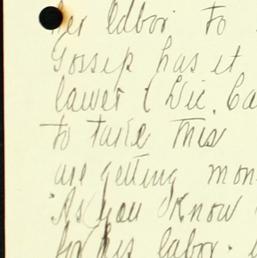 her labor to
Gossip has it
lawer (Dic. Ca
to take this
are getting mon
"As you know
for his labor.